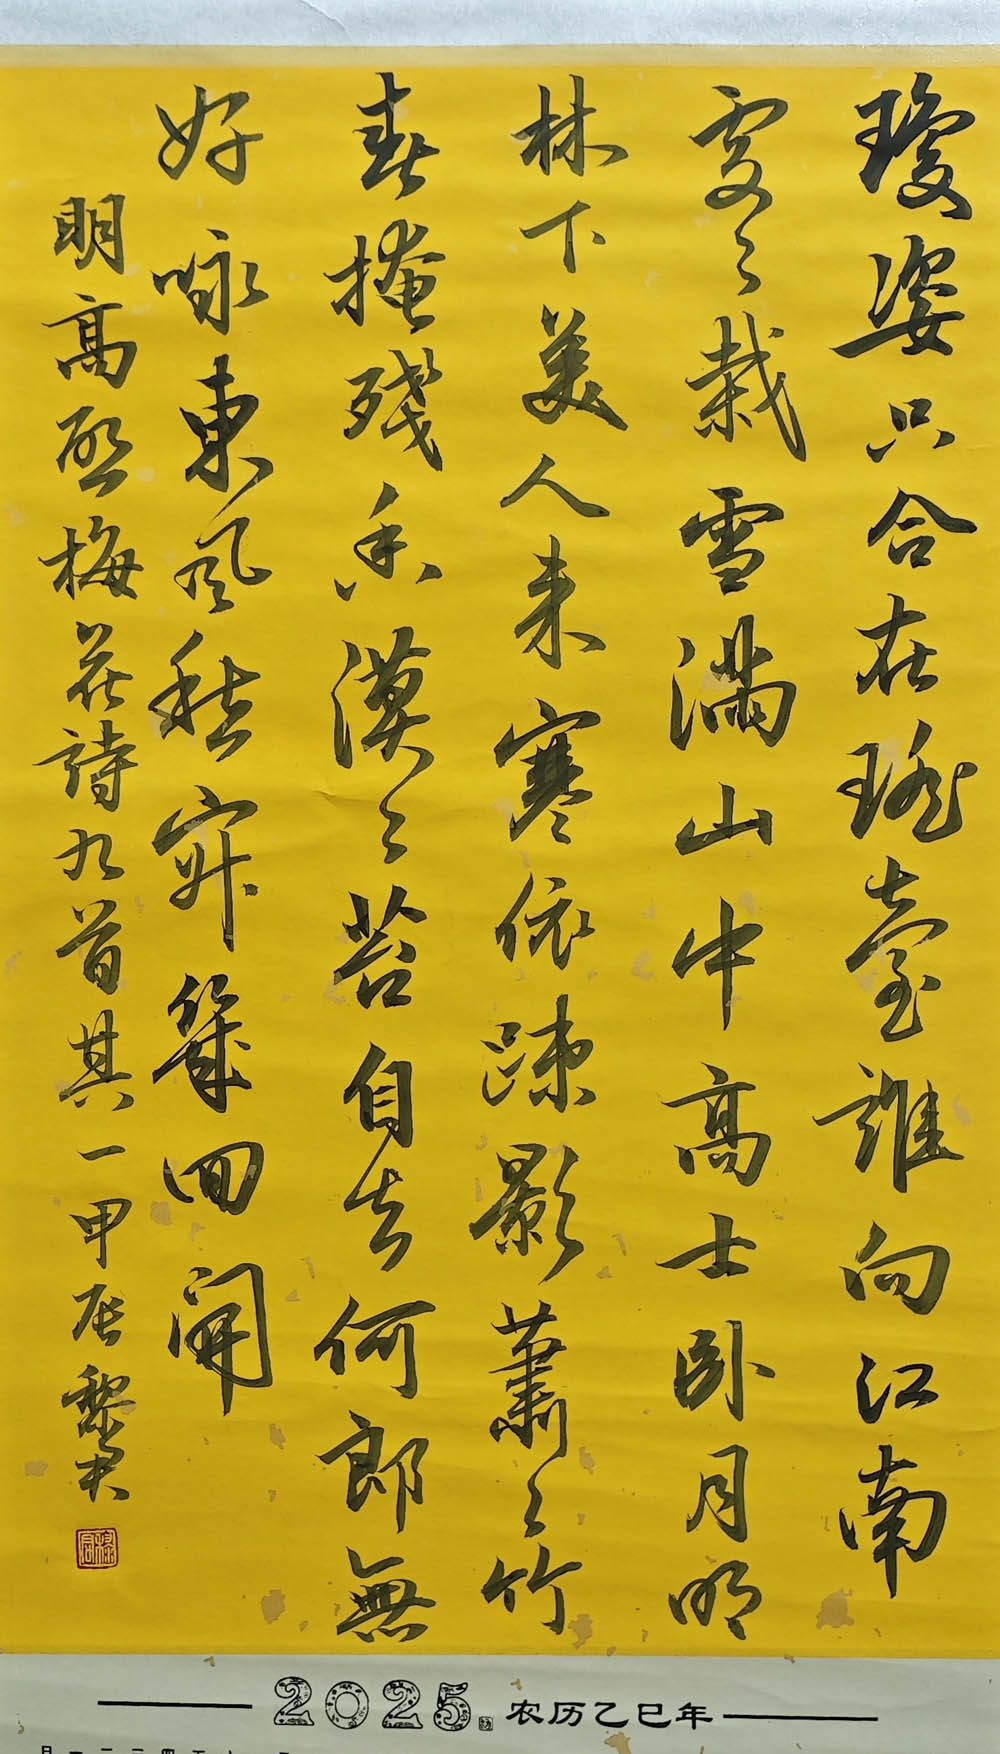 瓊姿只合在瑤臺誰向江南
處々栽雪滿山中高士卧月明
林下美人來寒依疎影蕭々竹
春掩殘香漠々苔自去何郎無
好咏東風愁寂幾回開
明高啓梅花詩九首其一甲辰黎
2025 农历乙巳年